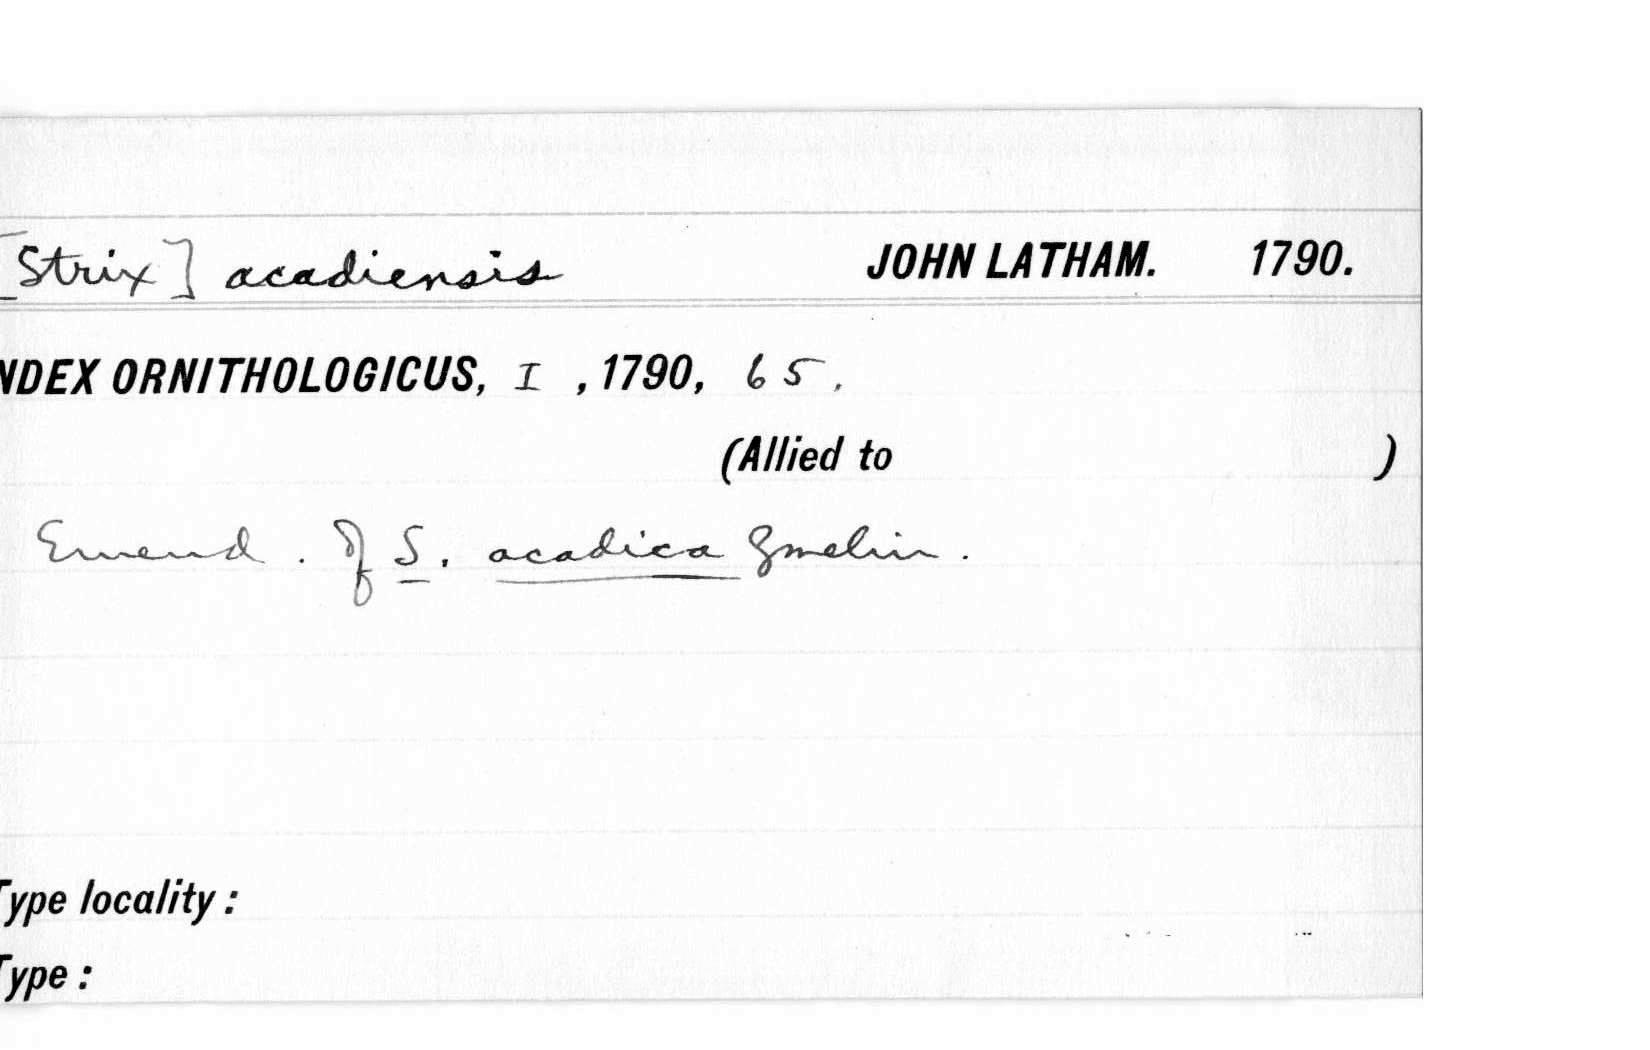 [Strix] acadiensis JOHN LATHAM. 1790.
NDEX ORNITHOLOGICUS, I , 1790, 65.
(Allied to )
Emend. of S. acadica Gmelin.
Type locality :
Type :